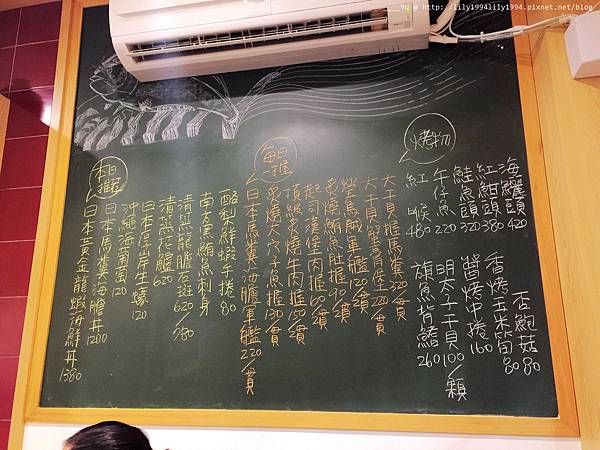 Yu @ http://lily1994lily1994.pixnet.net/blog
烤物
海鱺頭 420
紅魽頭 380
鮭魚頭 320
午仔魚 220
紅 喉 480
杏鮑菇 80
香烤玉米筍 80
醬烤中捲 160
明太子干貝 100/顆
旗魚背鰭 260
每日握
大干貝握馬糞 320/貫
大干貝蟹膏 220/貫
螢烏賊軍艦 120/貫
炙燒鮪魚肚握 90/貫
起司漢堡肉握 60/貫
頂級炙燒牛肉握 150/貫
炙燒大穴子魚握 130/貫
日本馬糞海膽軍艦 220/貫
本日推薦
酪梨鮮蝦手捲 80
南方黑鮪魚刺身
清蒸龍膽石斑 620/780
清蒸 620
日本厚岸生蠔 120
沖繩海葡萄 120
日本馬糞海膽丼 1200
日本黃金龍蝦海鮮丼 1380